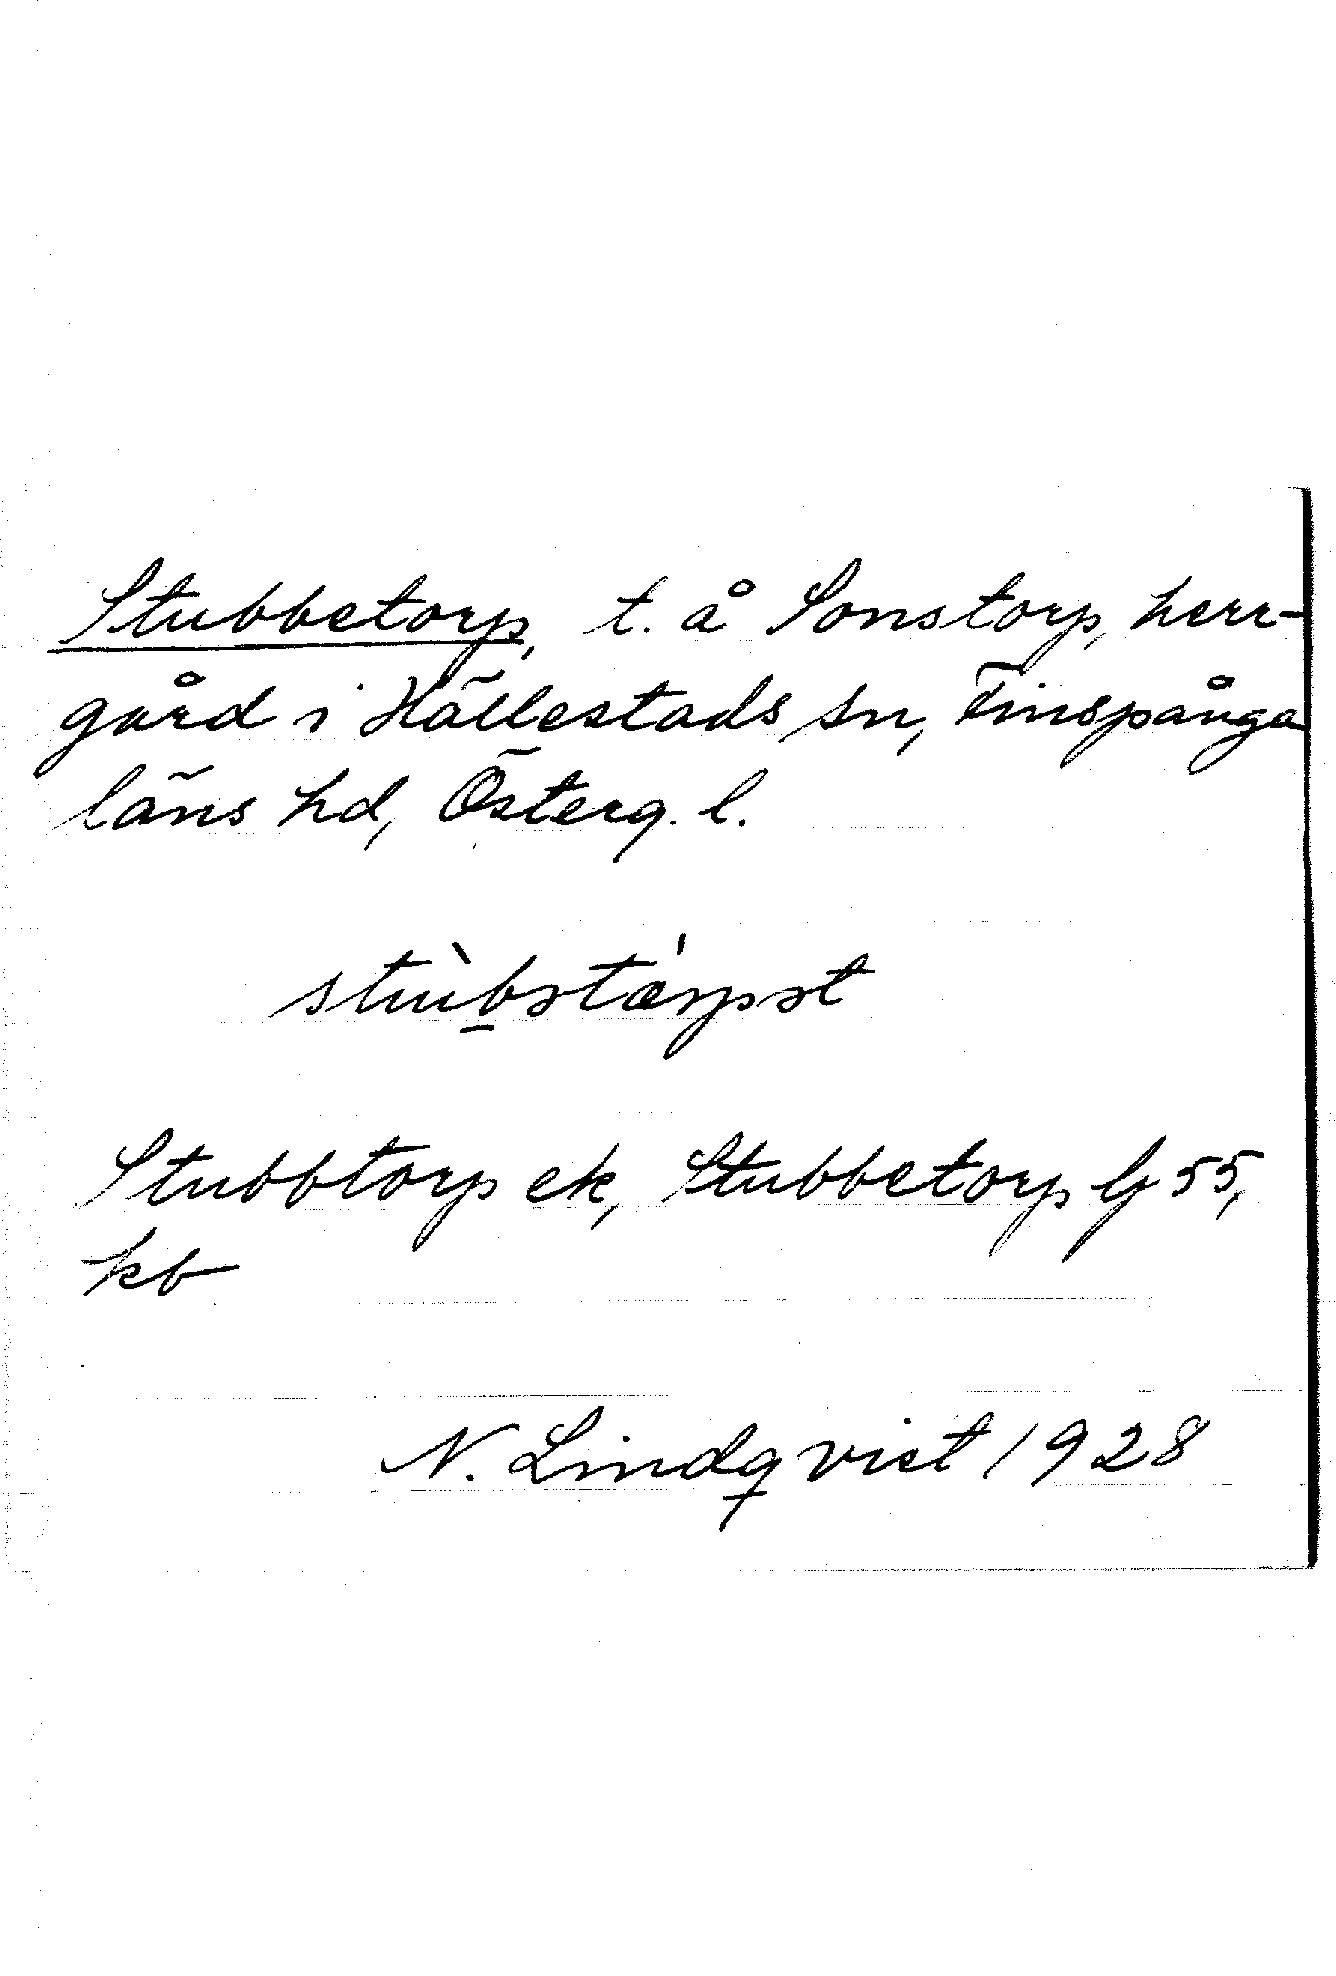 Stubbetorp, t. å Sonstorp, herr-
gård i Hällestads sn, Finspånga
läns hd, Österg. l.
Stubbtorp ek, Stubbetorp Gj 55,
kb
N. Lindqvist 1928